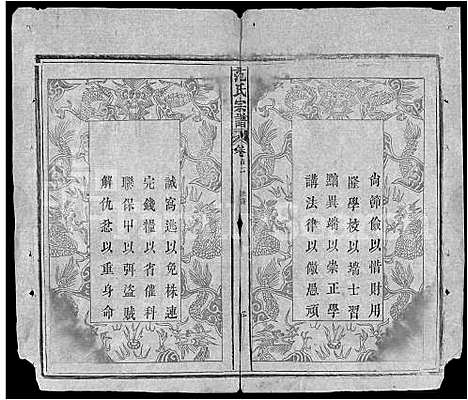 尚節儉以惜財用
隆學校以端士習
黜異端以崇正學
講法律以儆愚頑
范氏宗譜
卷首
誠窩逃以免株連
完錢糧以省催科
聯保甲以弭盜賊
解仇忿以重身命